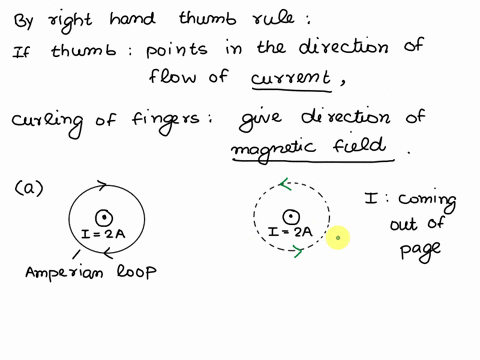 By right hand thumb rule:
If thumb: points in the direction of
flow of current,
curling of fingers: give direction of
magnetic field.
(a)
I = 2A
Amperian loop
I = 2A
I : coming
out of
page